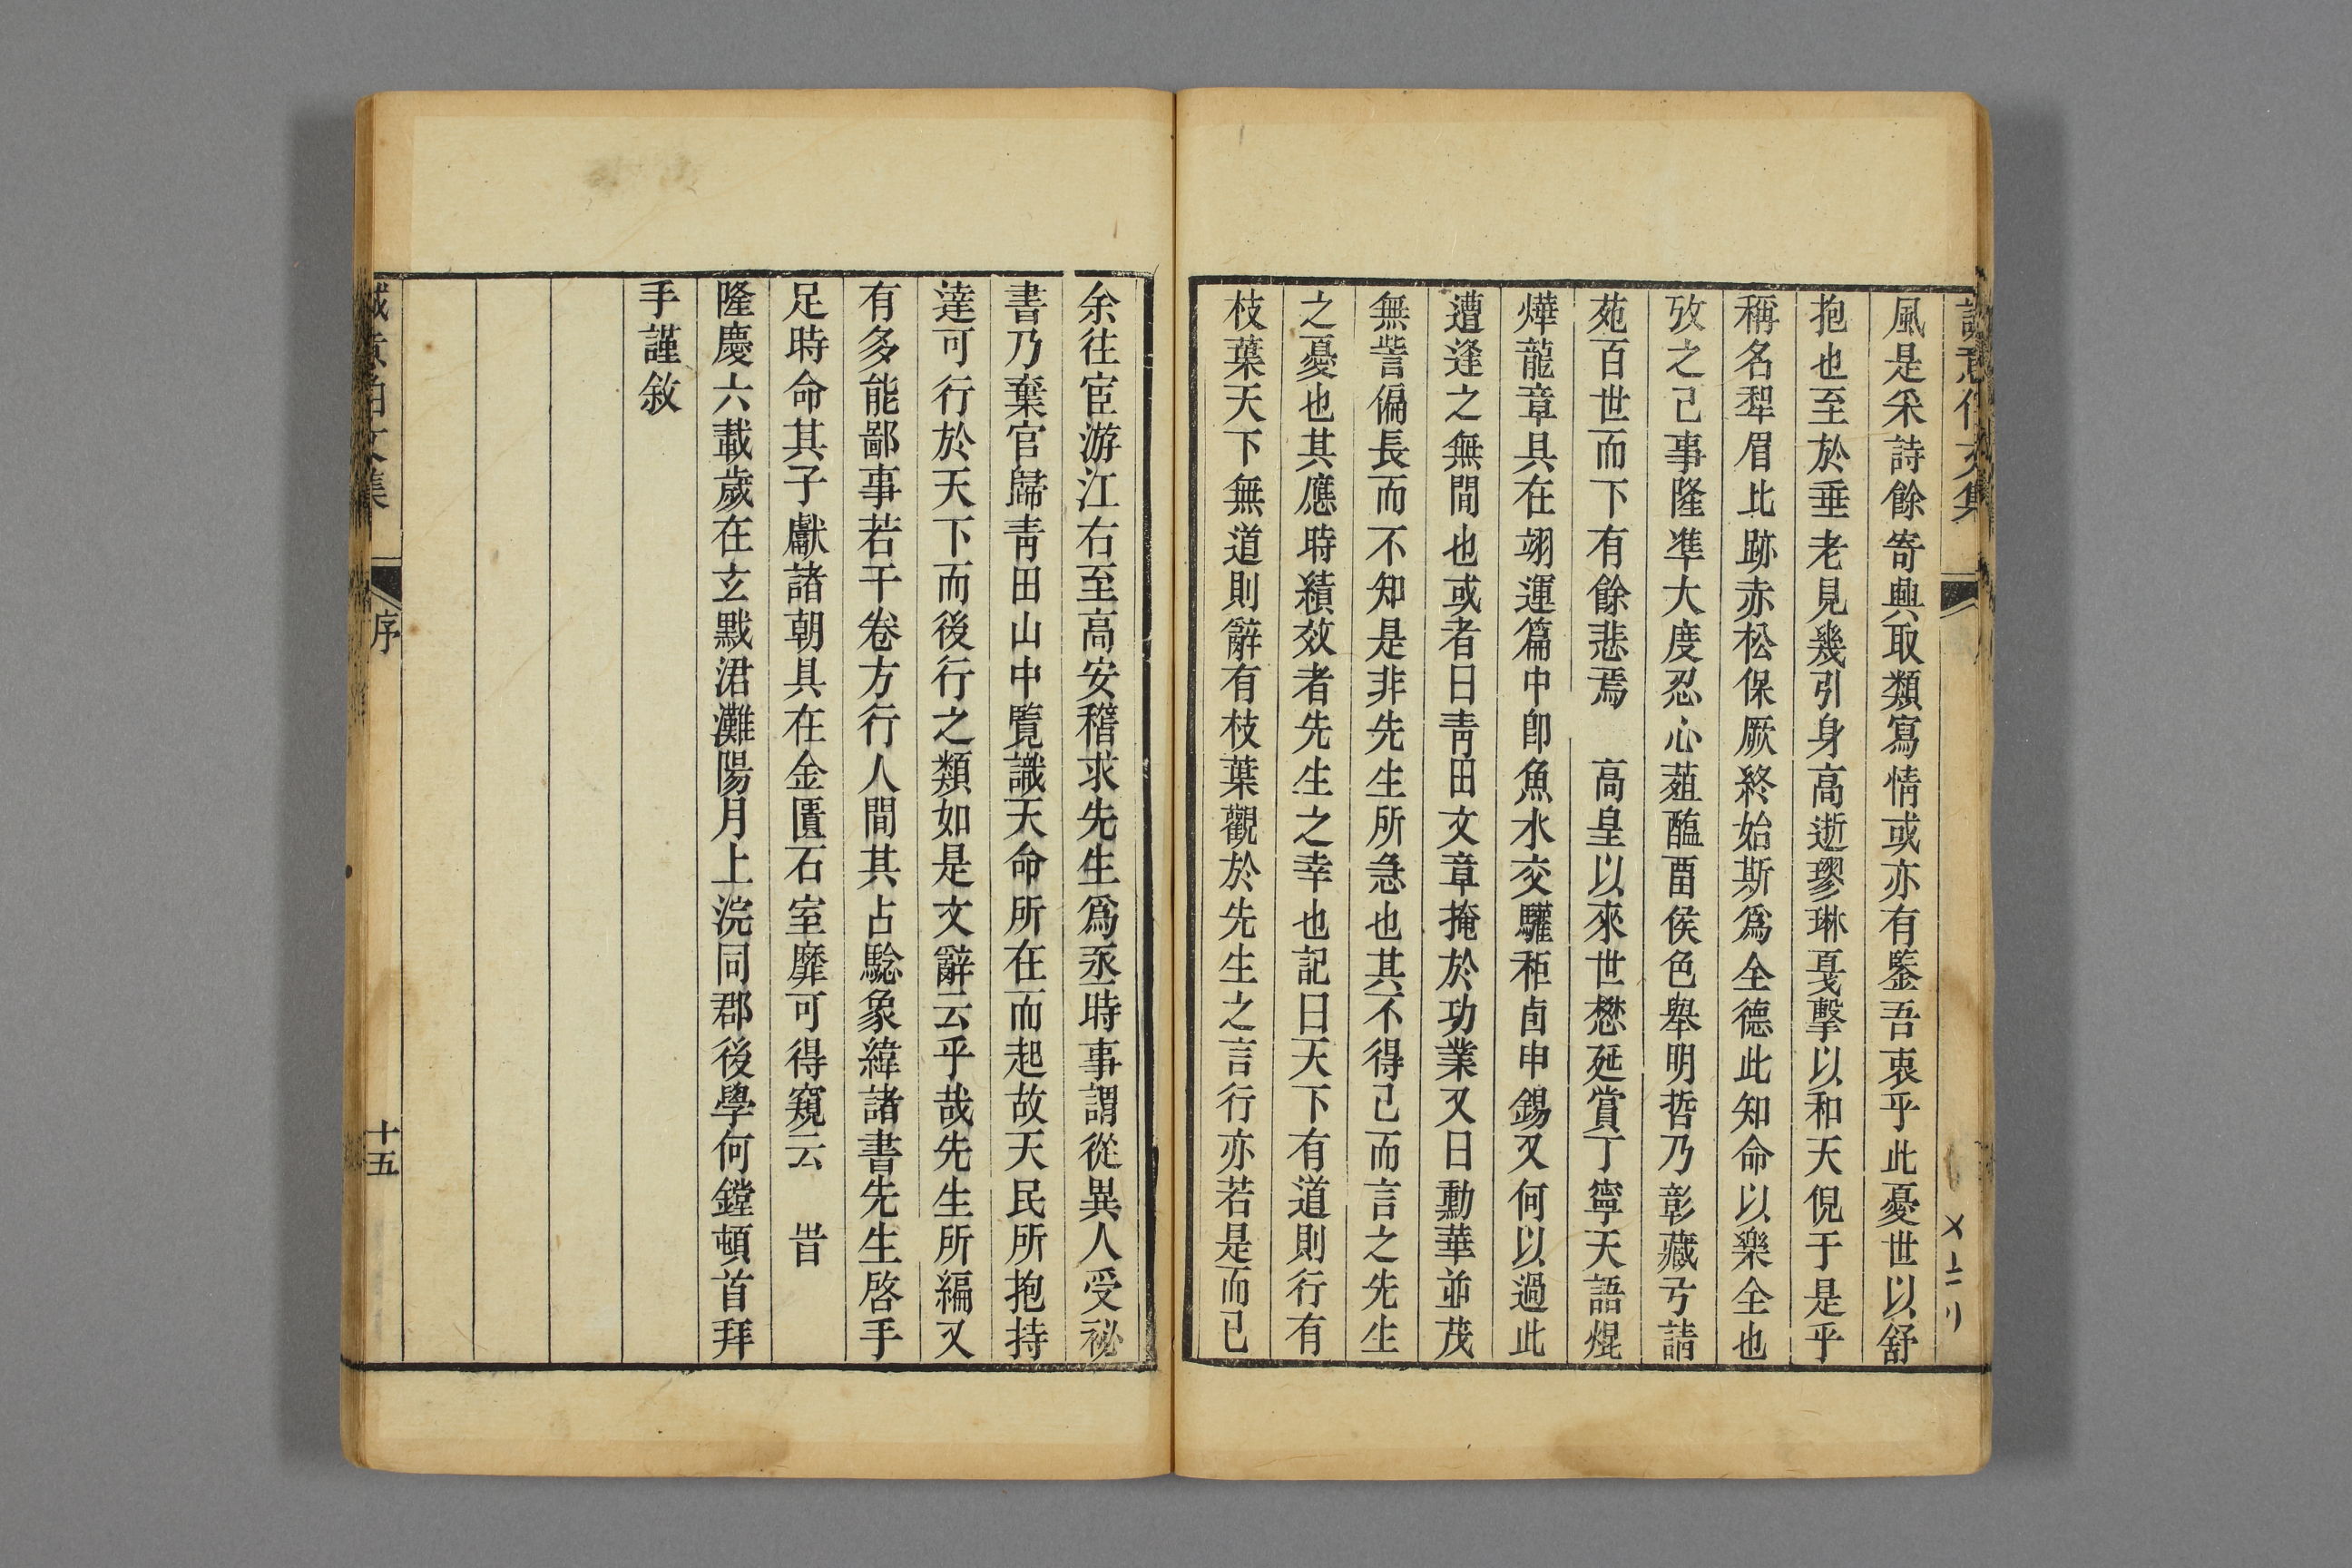 風是采詩餘寄興取類寫情或亦有鑒吾衷乎此憂世以舒
抱也至於垂老見幾引身高逝璆琳戛擊以和天倪于是乎
稱名犁眉比跡赤松保厥終始斯爲全德此知命以樂全也
攷之己事隆準大度忍心葅醢畱侯色舉明哲乃彰藏弓請
苑百世而下有餘悲焉　高皇以來世懋延賞丁寧天語焜
燁龍章具在翊運篇中卽魚水交驩秬卣申錫又何以過此
遭逢之無間也或者曰靑田文章掩於功業又曰勳華並茂
無訾偏長而不知是非先生所急也其不得已而言之先生
之憂也其應時績效者先生之幸也記曰天下有道則行有
枝葉天下無道則辭有枝葉觀於先生之言行亦若是而已
余往宦游江右至高安稽求先生爲丞時事謂從異人受祕
書乃棄官歸靑田山中覽識天命所在而起故天民所抱持
達可行於天下而後行之類如是文辭云乎哉先生所編又
有多能鄙事若干卷方行人間其占騐象緯諸書先生啓手
足時命其子獻諸朝具在金匱石室靡可得窺云　旹
隆慶六載歲在玄黓涒灘陽月上浣同郡後學何鏜頓首拜
手謹敘
誠意伯文集
序
十五